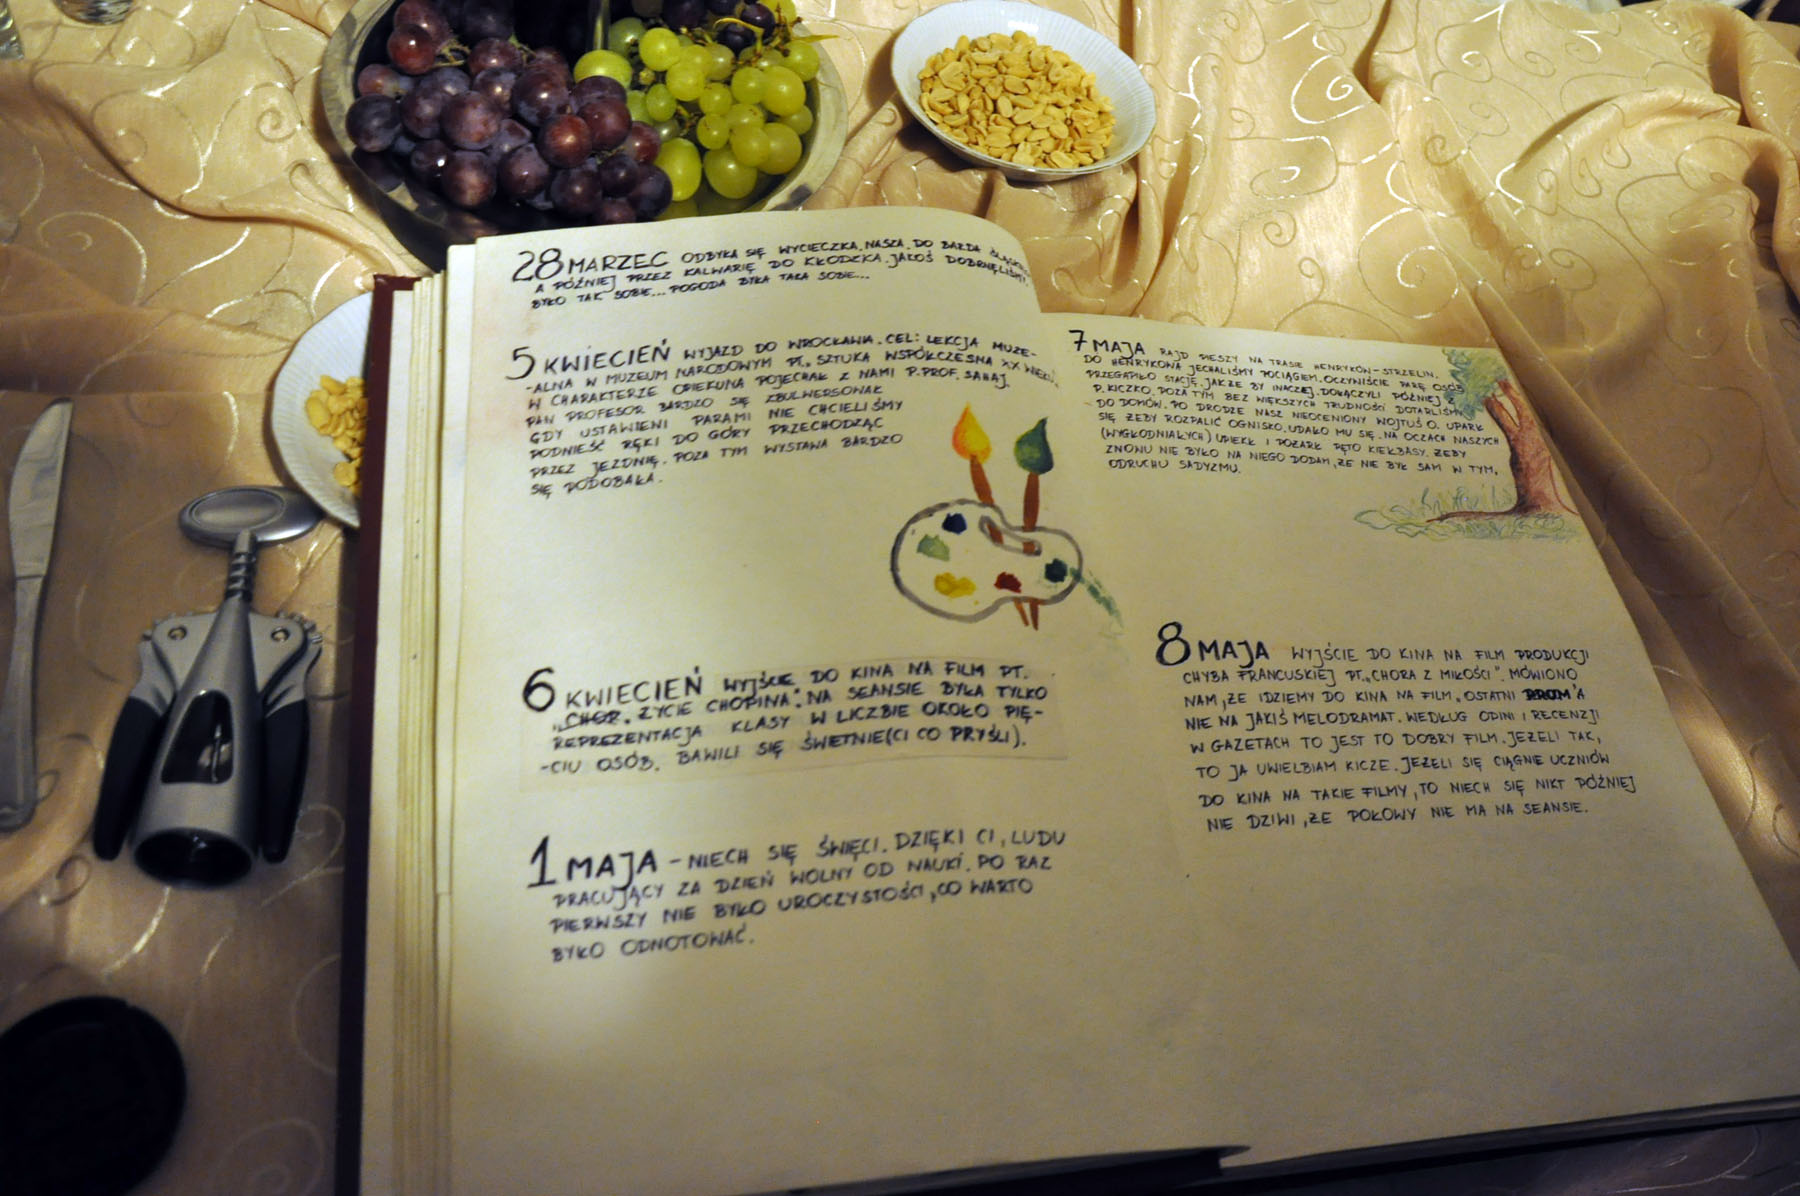 28 MARZEC ODBYŁA SIĘ WYCIECZKA NASZA DO BARDA
A PÓŹNIEJ PRZEZ KALWARIĘ DO KŁODZKA. JAKOŚ DOBRNĘLIŚMY.
BYŁO TAK SOBIE... POGODA BYŁA TAKA SOBIE...
5 KWIECIEŃ WYJAZD DO WROCŁAWIA. CEL: LEKCJA MUZE-
-ALNA W MUZEUM NARODOWYM PT. „SZTUKA WSPÓŁCZESNA XX WIEKU.
W CHARAKTERZE OPIEKUNA POJECHAŁ Z NAMI P. PROF. SAHAJ.
PAN PROFESOR BARDZO SIĘ ZBULWERSOWAŁ
GDY USTAWIENI PARAMI NIE CHCIELIŚMY
PODNIEŚĆ RĘKI DO GÓRY PRZECHODZĄC
PRZEZ JEZDNIĘ. POZA TYM WYSTAWA BARDZO
SIĘ PODOBAŁA.
6 KWIECIEŃ WYJŚCIE DO KINA NA FILM PT.
„CHOR. ŻYCIE CHOPINA". NA SEANSIE BYŁA TYLKO
REPREZENTACJA KLASY W LICZBIE OKOŁO PIĘ-
-CIU OSÓB. BAWILI SIĘ ŚWIETNIE (CI CO PRYŚLI).
1 MAJA - NIECH SIĘ ŚWIĘCI. DZIĘKI CI, LUDU
PRACUJĄCY ZA DZIEŃ WOLNY OD NAUKI. PO RAZ
PIERWSZY NIE BYŁO UROCZYSTOŚCI, CO WARTO
BYŁO ODNOTOWAĆ.
7 MAJA RAJD PIESZY NA TRASIE HENRYKÓW - STRZELIN.
DO HENRYKOWA JECHALIŚMY POCIĄGIEM. OCZYWIŚCIE PARĘ OSÓB
PRZEGAPIŁO STACJĘ. JAKŻE BY INACZEJ. DOŁĄCZYLI PÓŹNIEJ Z
P. KICZKO. POZA TYM BEZ WIĘKSZYCH TRUDNOŚCI DOTARLIŚMY
DO DOMÓW. PO DRODZE NASZ NIEOCENIONY WOJTUŚ O. UPARŁ
SIĘ ŻEBY ROZPALIĆ OGNISKO. UDAŁO MU SIĘ. NA OCZACH NASZYCH
(WYGŁODNIAŁYCH) UPIEKŁ I POŻARŁ PĘTO KIEŁBASY. ŻEBY
ZNOWU NIE BYŁO NA NIEGO DODAM, ŻE NIE BYŁ SAM W TYM,
ODRUCHU SADYZMU.
8 MAJA WYJŚCIE DO KINA NA FILM PRODUKCJI
CHYBA FRANCUSKIEJ PT. „CHORA Z MIŁOŚCI". MÓWIONO
NAM, ŻE IDZIEMY DO KINA NA FILM „OSTATNI PROM" A
NIE NA JAKIŚ MELODRAMAT. WEDŁUG OPINI I RECENZJI
W GAZETACH TO JEST TO DOBRY FILM. JEŻELI TAK,
TO JA UWIELBIAM KICZE. JEŻELI SIĘ CIĄGNIE UCZNIÓW
DO KINA NA TAKIE FILMY, TO NIECH SIĘ NIKT PÓŹNIEJ
NIE DZIWI, ŻE POŁOWY NIE MA NA SEANSIE.